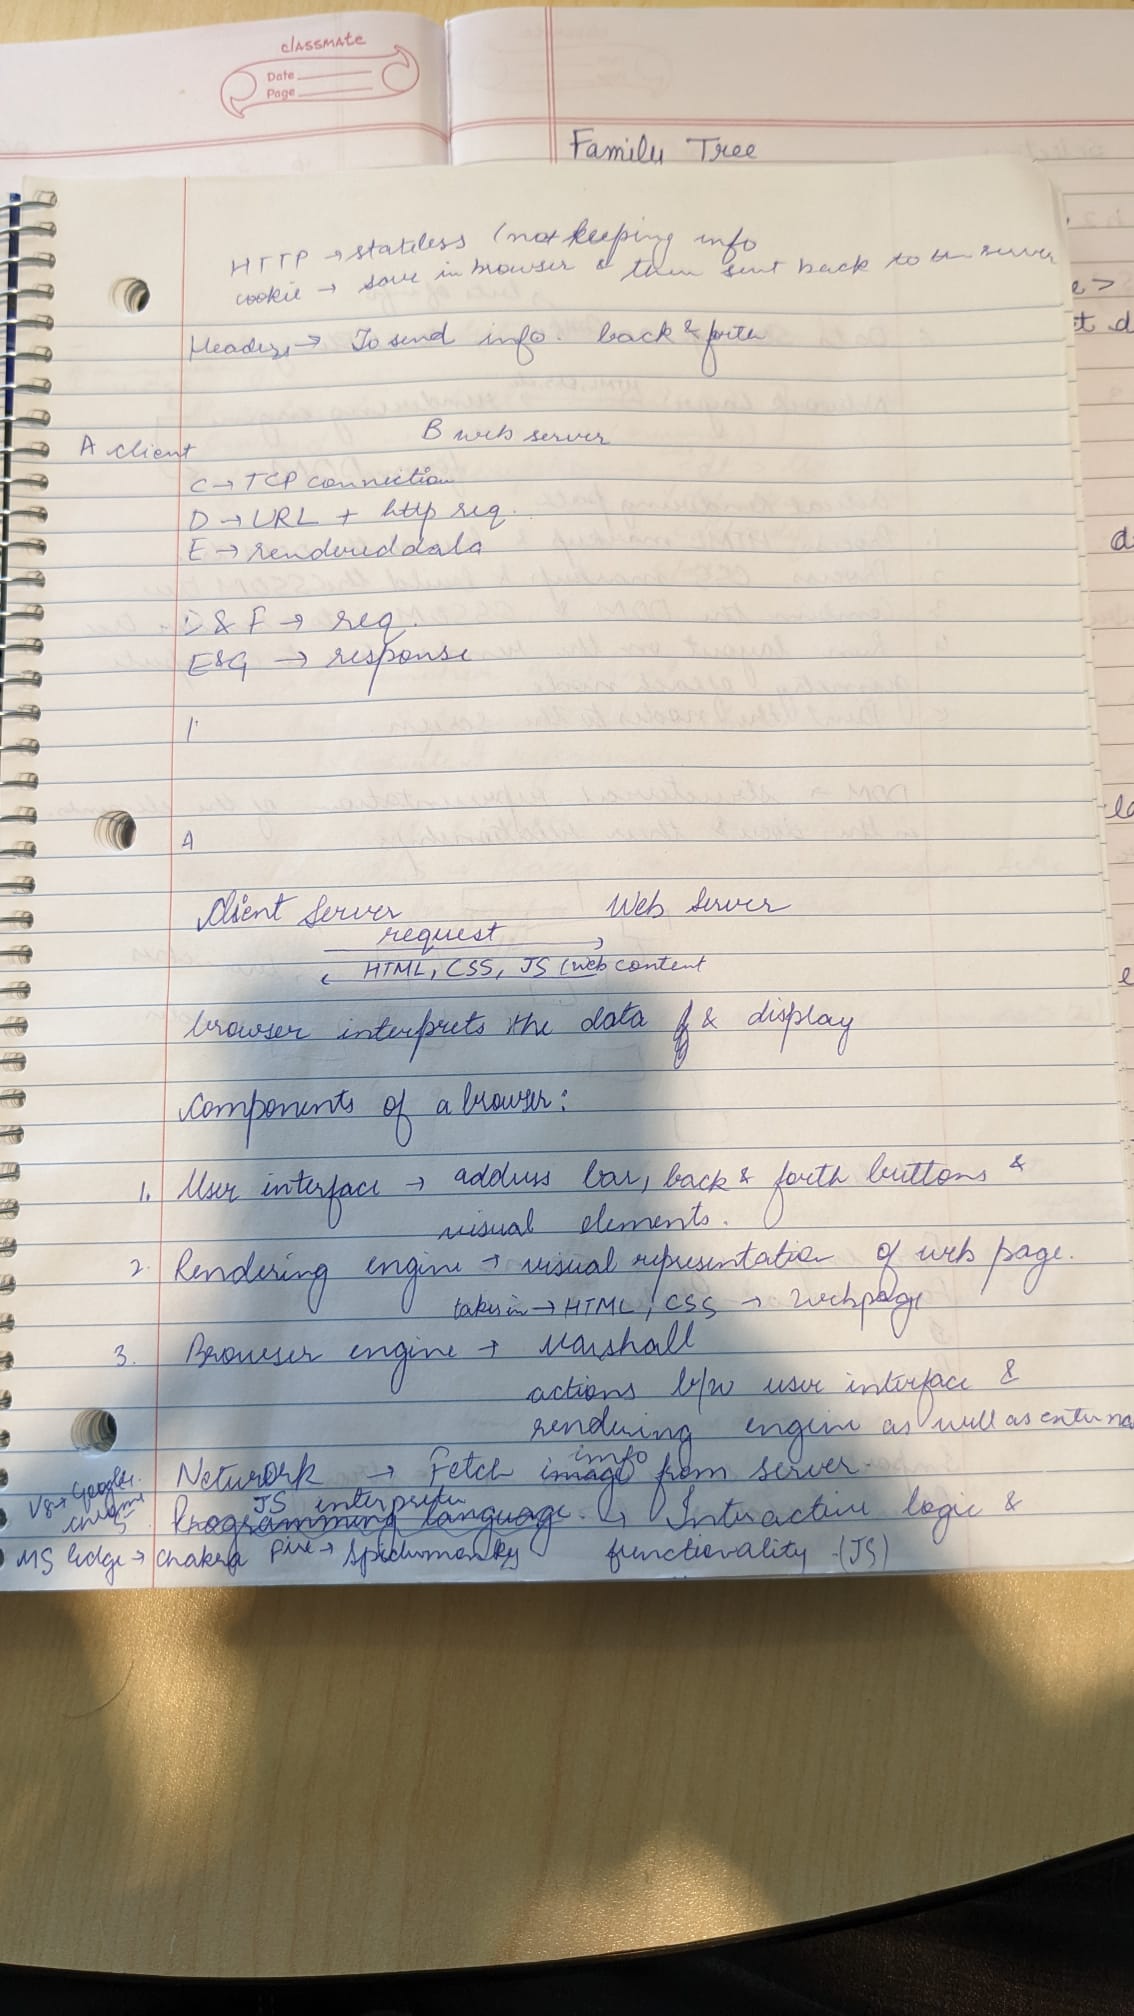 classmate
Date
Page
Family Tree
HTTP → stateless (not keeping info
cookie → save in browser & then sent back to the server
Headers → To send info. back & forth
A client B web server
C → TCP connection
D → URL + http req.
E → rendered data
D & F → req.
E&G → response
A
Client Server Web Server
request
HTML, CSS, JS (web content
browser interprets the data & display
Components of a browser:
1. User interface → address bar, back & forth buttons &
visual elements.
2. Rendering engine → visual representation of web page.
takes in → HTML, CSS → webpage
3. Browser engine → Marshall
actions b/w user interface &
rendering engine as well as externa
info
Network → Fetch image from server.
V8 → Google
chrome
JS interpreter
5 Programming language. ↳ Interactive logic &
MS Edge → chakra Fire → Spidermonkey functionality (JS)